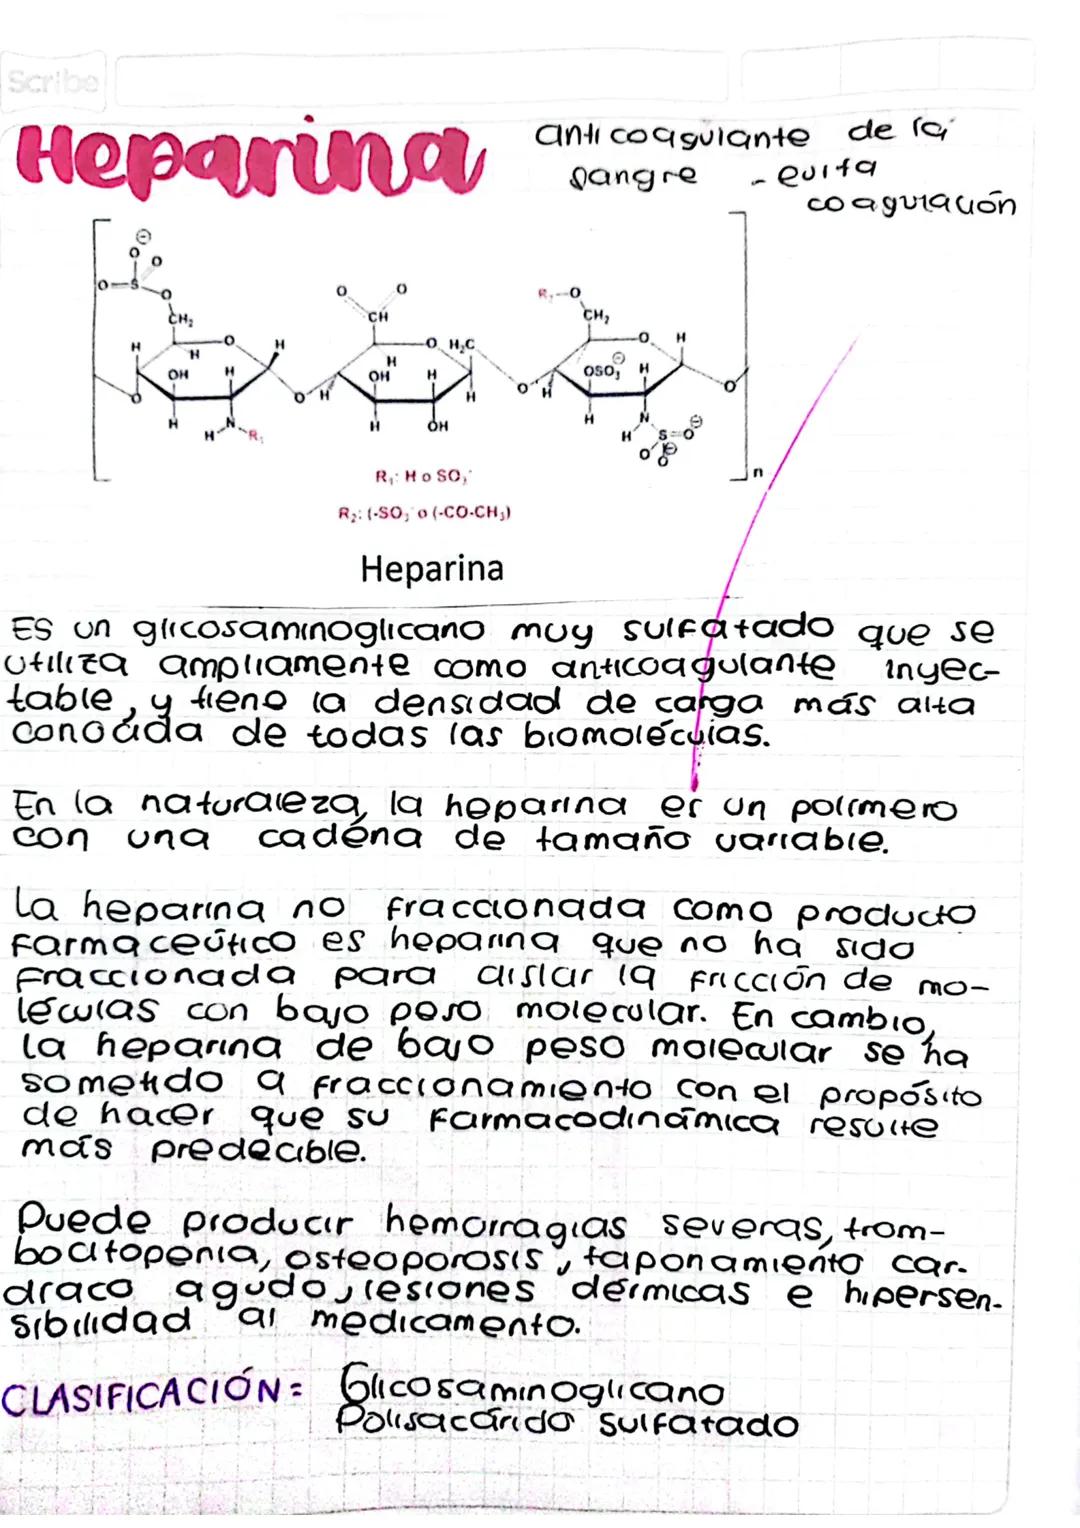 Scribe
Heparina
anticoagulante de la
sangre - evita
coagulación
R₁: H o SO₃⁻
R₂: (-SO₃⁻ o (-CO-CH₃)
Heparina
Es un glicosaminoglicano muy sulfatado que se
utiliza ampliamente como anticoagulante inyec-
table, y tiene la densidad de carga más alta
conocida de todas las biomoléculas.
En la naturaleza, la heparina es un polímero
con una cadena de tamaño variable.
La heparina no fraccionada como producto
farmaceútico es heparina que no ha sido
fraccionada para aislar la fricción de mo-
léculas con bajo peso molecular. En cambio,
la heparina de bajo peso molecular se ha
sometido a fraccionamiento con el propósito
de hacer que su farmacodinámica resulte
más predecible.
Puede producir hemorragias severas, trom-
bocitopenia, osteoporosis, taponamiento car-
diaco agudo, lesiones dérmicas e hipersen-
sibilidad al medicamento.
CLASIFICACIÓN: Glicosaminoglicano
Polisacárido sulfatado